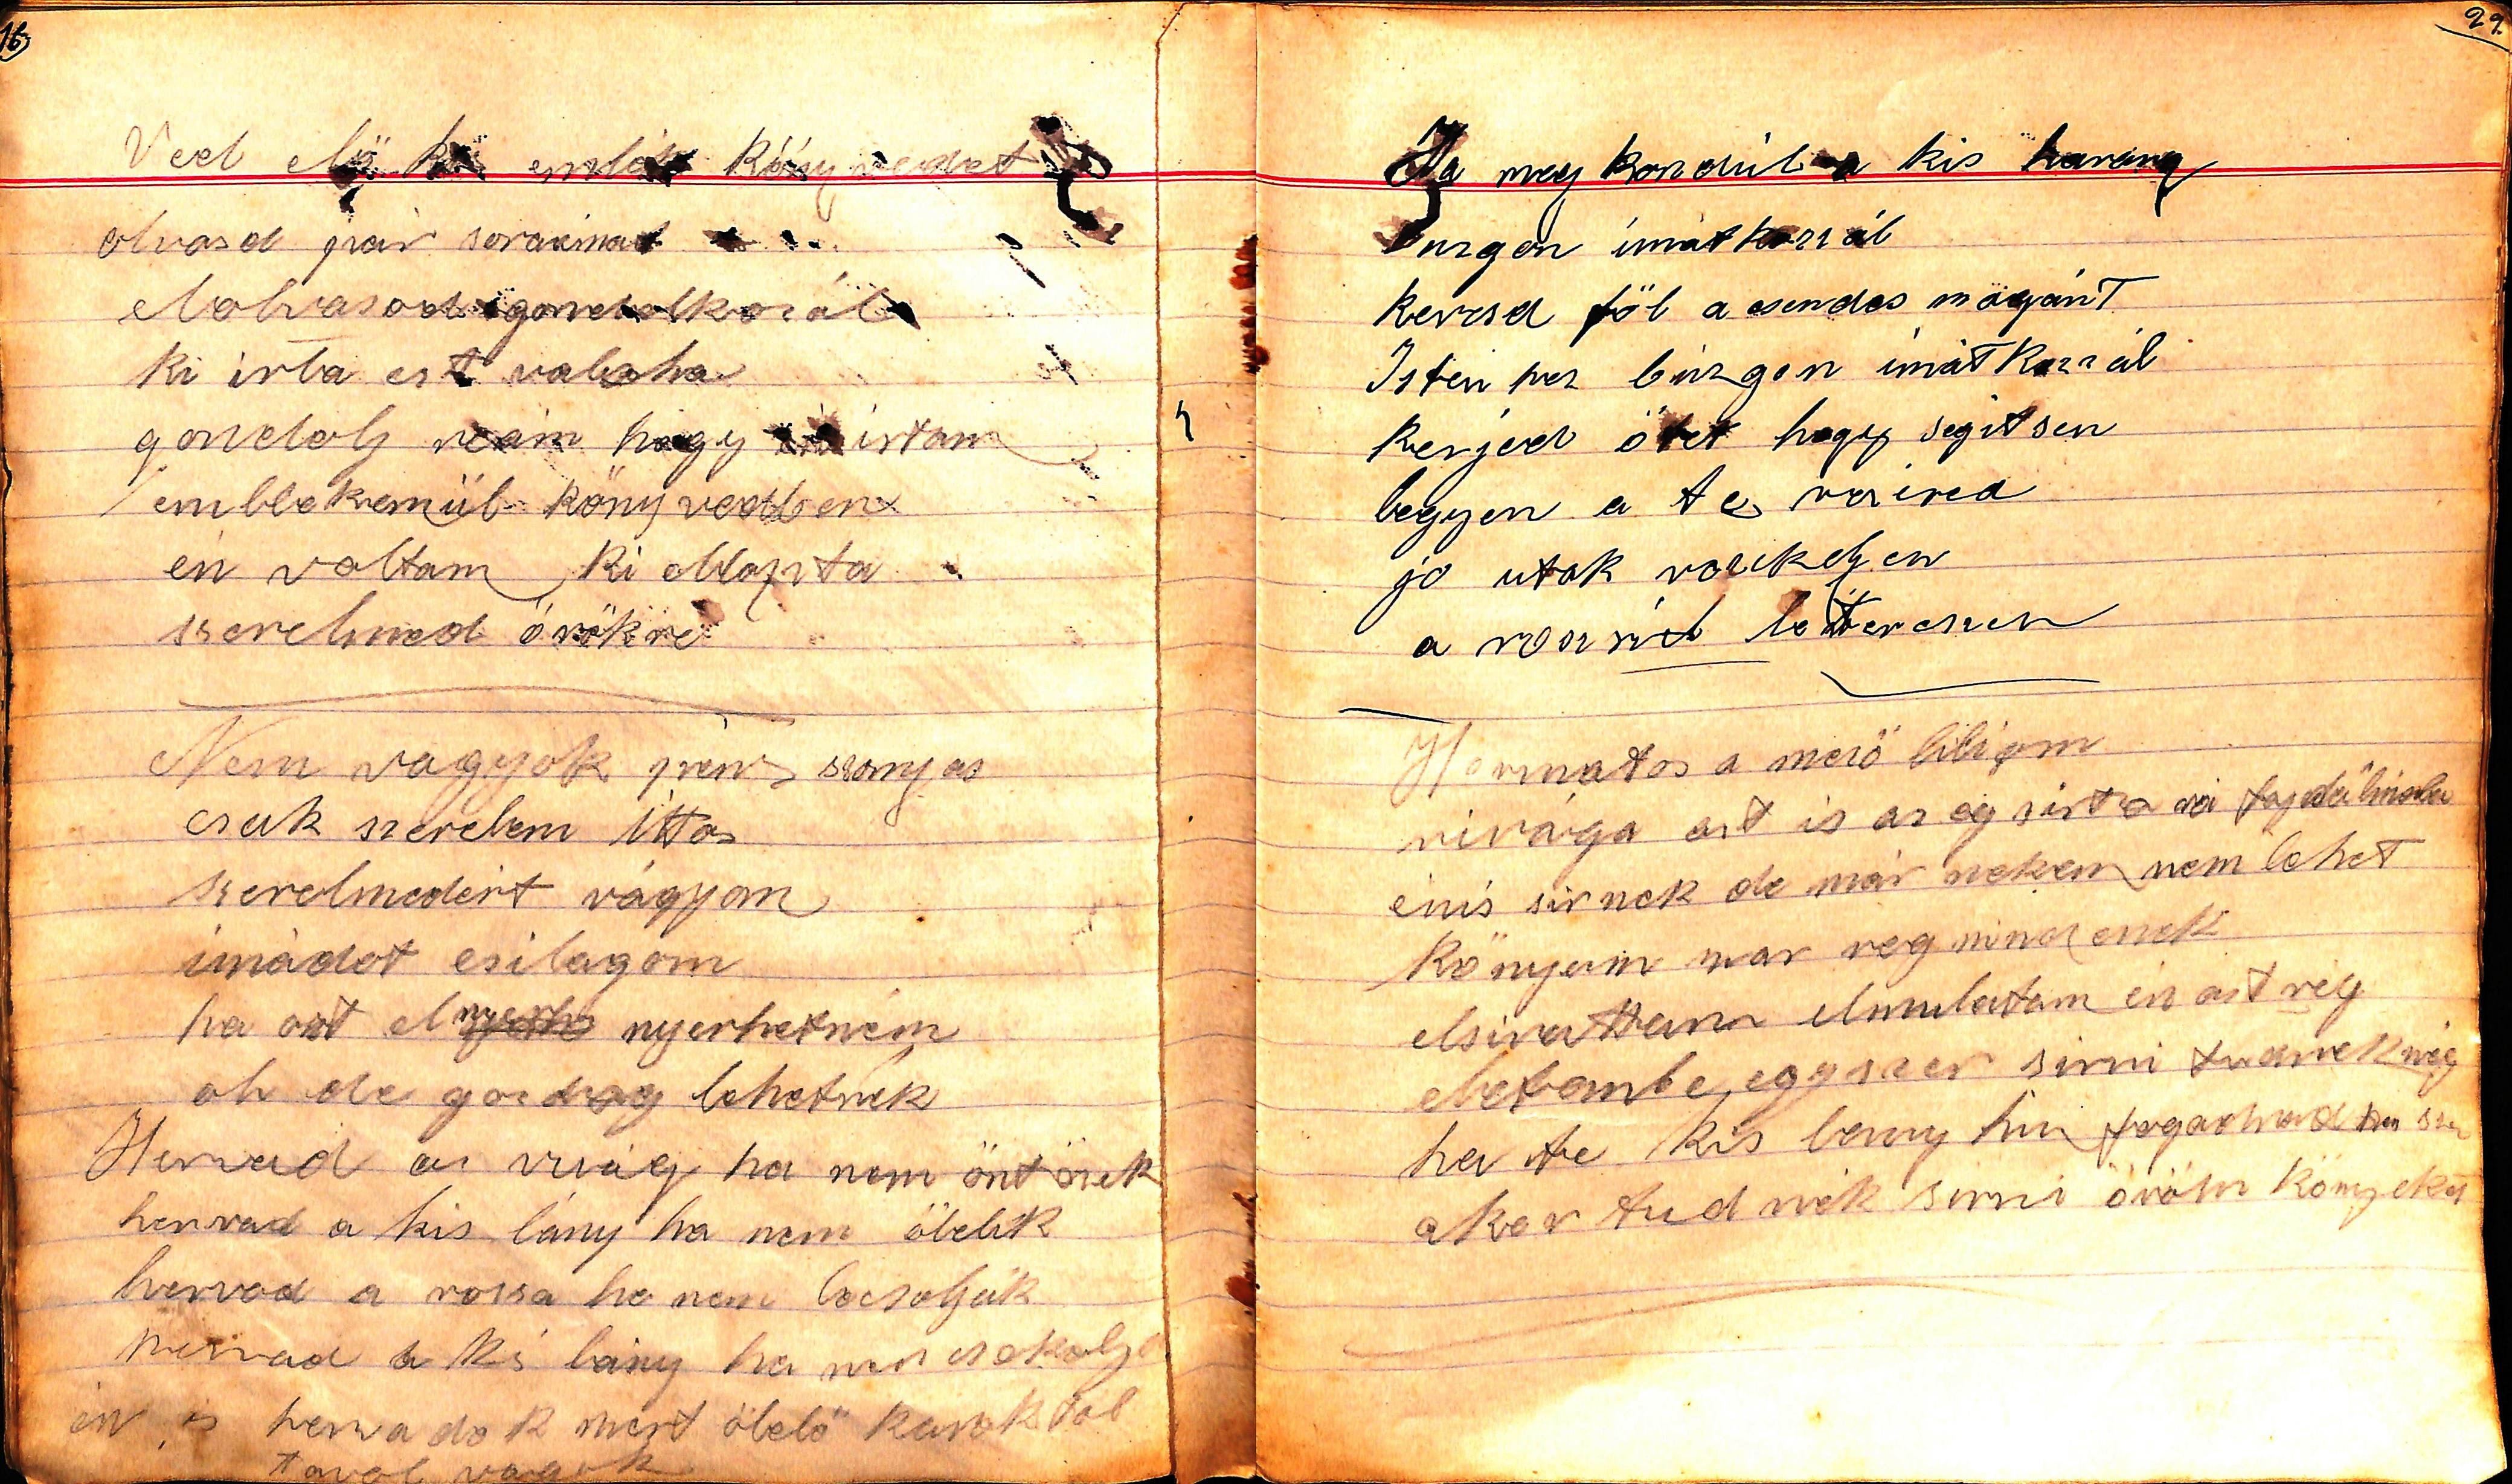 16
Ved elő kis emlék könyvedet
olvasd pár soraimat
elolvasod gondolkozál
ki irta est valaha
gondolj reám hogy én irtam
emblekemül könyvedben
én voltam ki ellopta
szerelmed örökre
Nem vagyok pénz szonyas
csak szerelem ittas
szerelmedért vágyom
imádot csilagom
ha ozt el nyerhetném
oh de gazdag lehetnék
Hervad az virág ha nem öntözek
hervad a kis lány ha nem ölelik
hervad a rossa ha nem locsolják
hervad a kis lány ha nem csokolja
én is hervadok mert ölelö karoktol
tavol vagok
29.
Ha meg kondúl a kis harang
buzgon imátkozzál
keresd föl a csendes magánt
Isten hez búzgon imátkozzál
kerjed ötet hogy segitsen
legyen a te vezired
jo utak vezekeljen
a roszrúl letereszen
Harmatos a mezö liliom
virága azt is az ég sirta rá fajdálmába
énis sirnek de már nekem nem lehet
könyeim mar reg mind ennek
elsirattam elmulatam én azt rég
eletembe egyszer sirni tudnek még
ha te kis lany hű fogadnad ha
aker tudnék sirni öröm könyeket